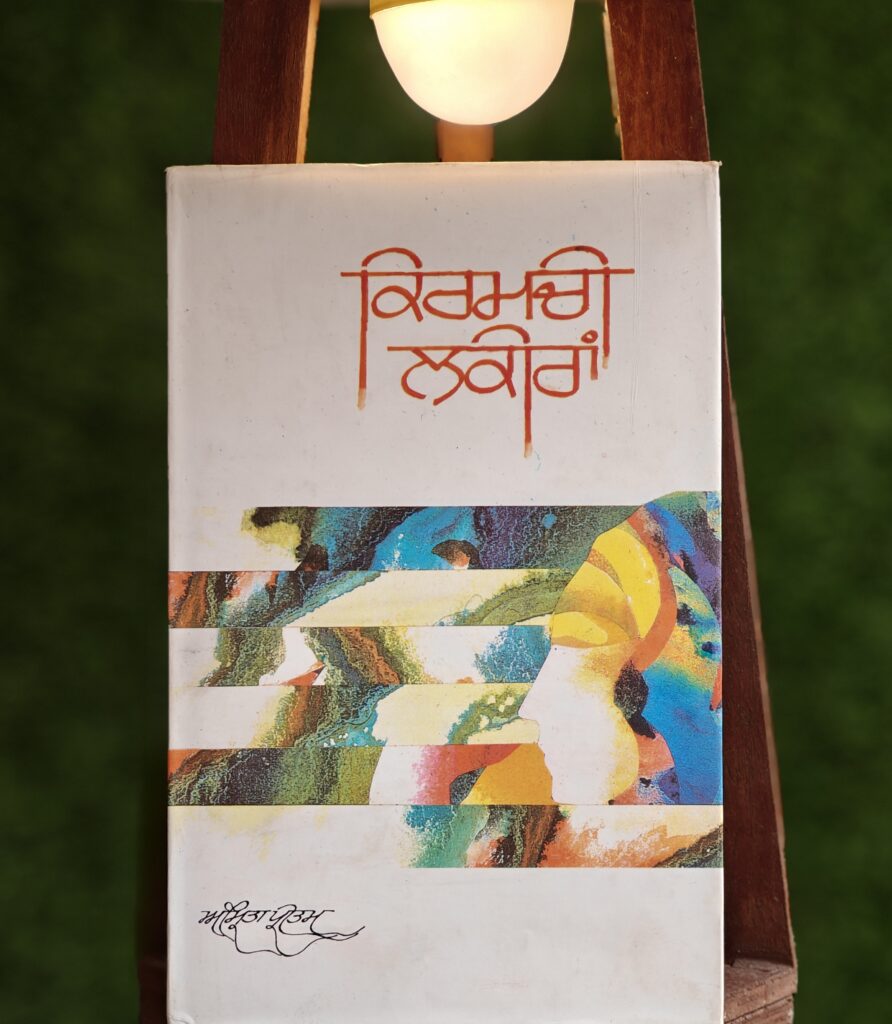 ਕਿਰਮਚੀ
ਲਕੀਰਾਂ
ਅੰਮ੍ਰਿਤਾ ਪ੍ਰੀਤਮ